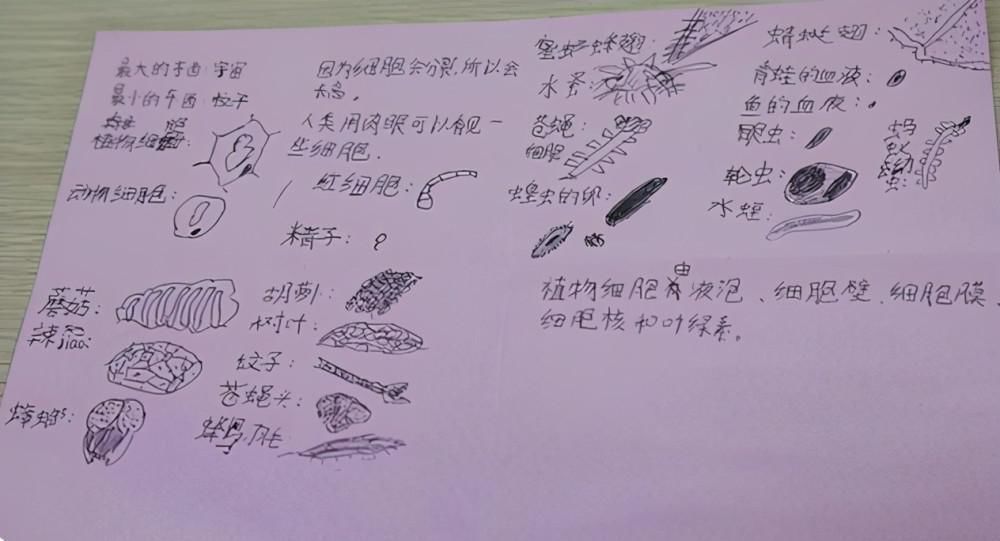 最大的东西:宇宙
最小的东西:粒子
植物细胞:
动物细胞:
因为细胞会分裂,所以会
长高。
人类用肉眼可以看见一
些细胞.
红细胞:
精子:
蘑菇:
辣jiao:
蟑螂:
胡萝卜:
树叶:
蚊子:
苍蝇头:
蜂鸟
毛:
蜜蜂 翅:
水蚤:
苍蝇:
细胞
蝗虫的卵:
蜻蜓翅:
青蛙的血液:
鱼的血液:
眼虫:
轮虫:
水蛭:
蚂
蚁
幼
虫:
植物细胞由液泡、细胞壁、细胞膜、
细胞核和叶绿素。